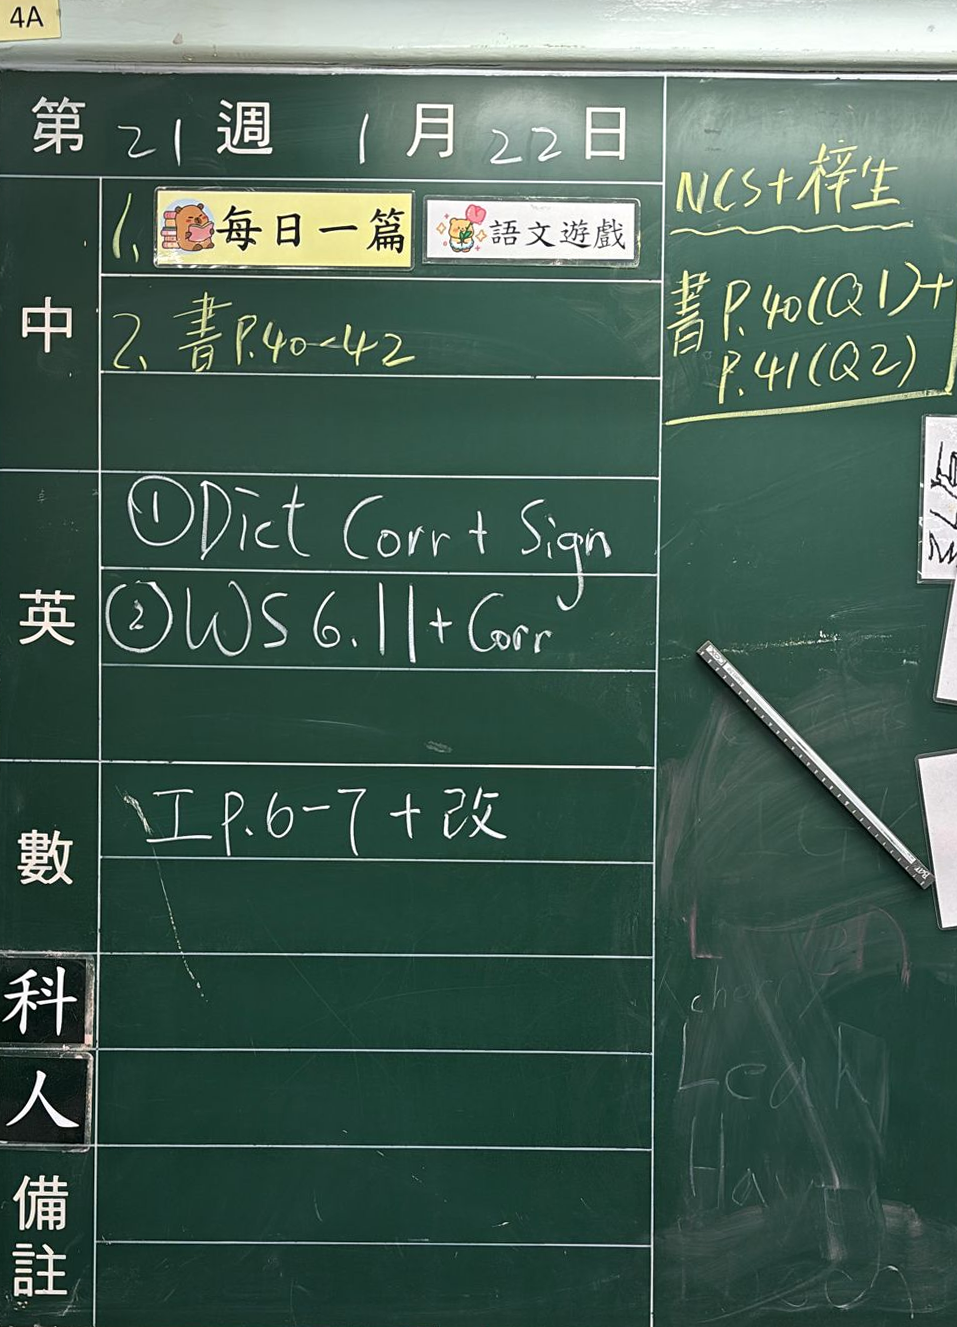 4A
第 21 週 1 月 22 日
中
1. 每日一篇 語文遊戲
2. 書P.40-42
NCS+梓生
書P.40(Q1)+
P.41(Q2)
英
①Dict Corr+Sign
②WS 6.11+Corr
數
工P.6-7+改
科
人
備註
Lean